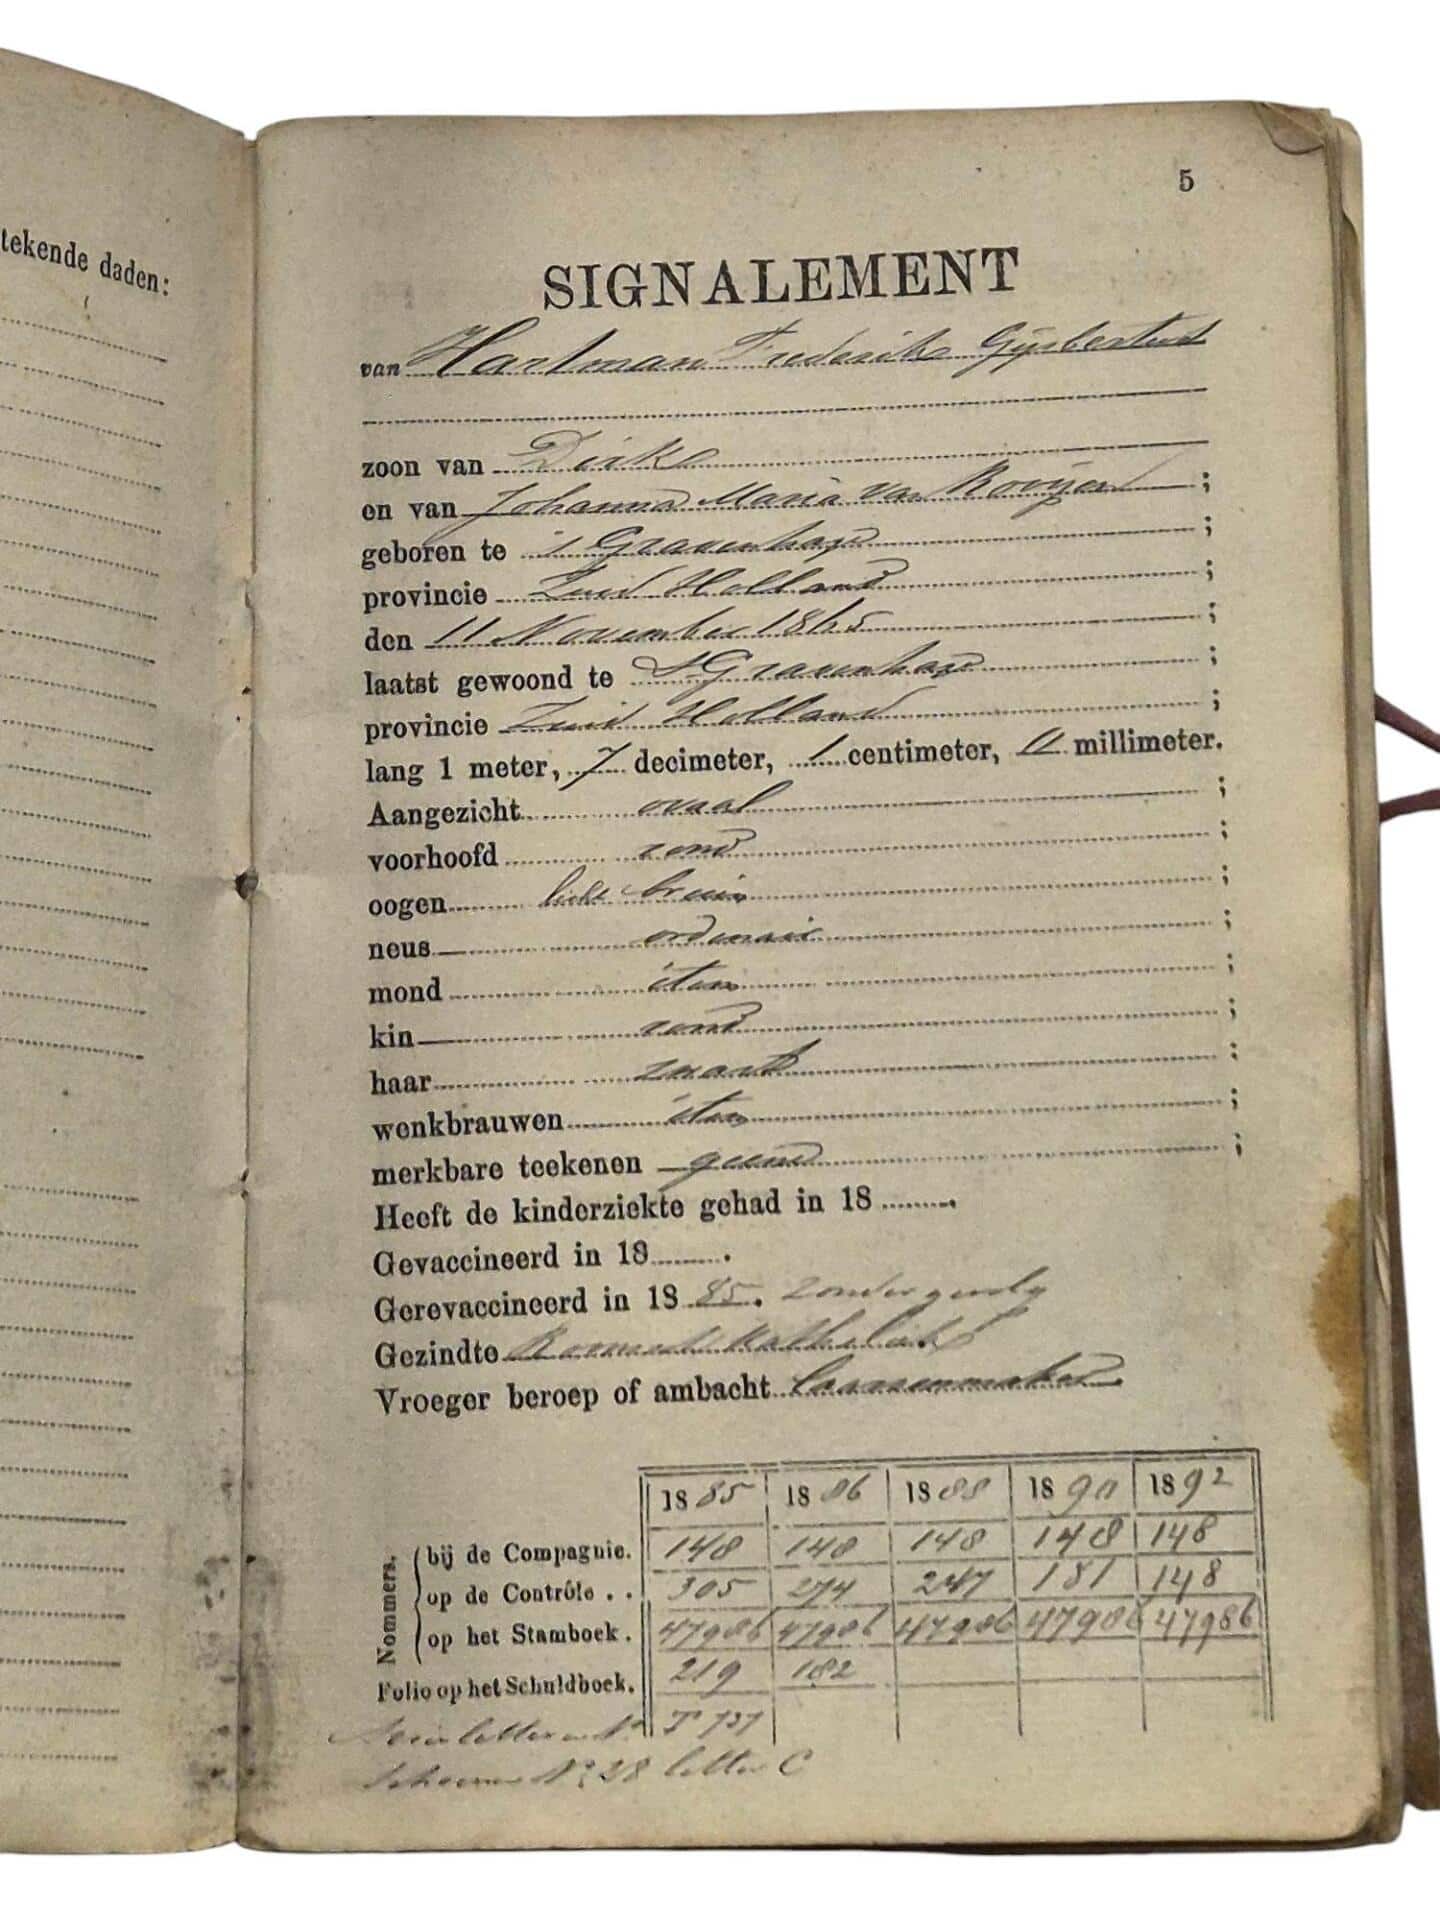 tekende daden:
5
SIGNALEMENT
van Hartman Frederik Gijsbertus
zoon van Dirk
en van Johanna Maria van Rooijen ;
geboren te 's Gravenhage ;
provincie Zuid Holland ;
den 11 November 1865 ;
laatst gewoond te 's Gravenhage ;
provincie Zuid Holland ;
lang 1 meter, 7 decimeter, 1 centimeter, millimeter.
Aangezicht ovaal ;
voorhoofd rond ;
oogen licht bruin ;
neus ordinair ;
mond item ;
kin rond ;
haar zwart ;
wenkbrauwen item ;
merkbare teekenen geene ;
Heeft de kinderziekte gehad in 18 .
Gevaccineerd in 18 .
Gerevaccineerd in 18 85. zonder gevolg
Gezindte Roomsch Katholiek
Vroeger beroep of ambacht
1885 1886 1888 1890 1892
Nommers.
bij de Compagnie. 148 148 148 148 148
op de Contrôle . . 305 274 247 181 148
op het Stamboek. 47986 47986 47986 47986 47986
Folio op het Schuldboek. 219 182
letter en N° T 737
N° 28 letter C